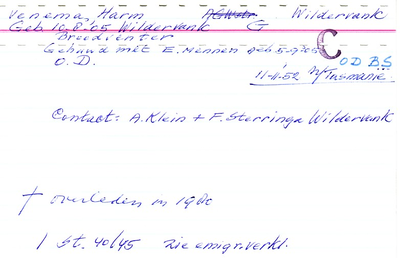 Venema, Harm AGWstr. Wildervank
Geb. 10-8-'05 Wildervank G
Broedienter C
Gehuwd met E. Mennen geb 5-9-'05
O.D. O D B.S
11-11-52 n/Tasmanie
Contact: A. Klein + F. Sterringa Wildervank
† overleden in 1980
1 St. 40/45 zie emigr. verkl.